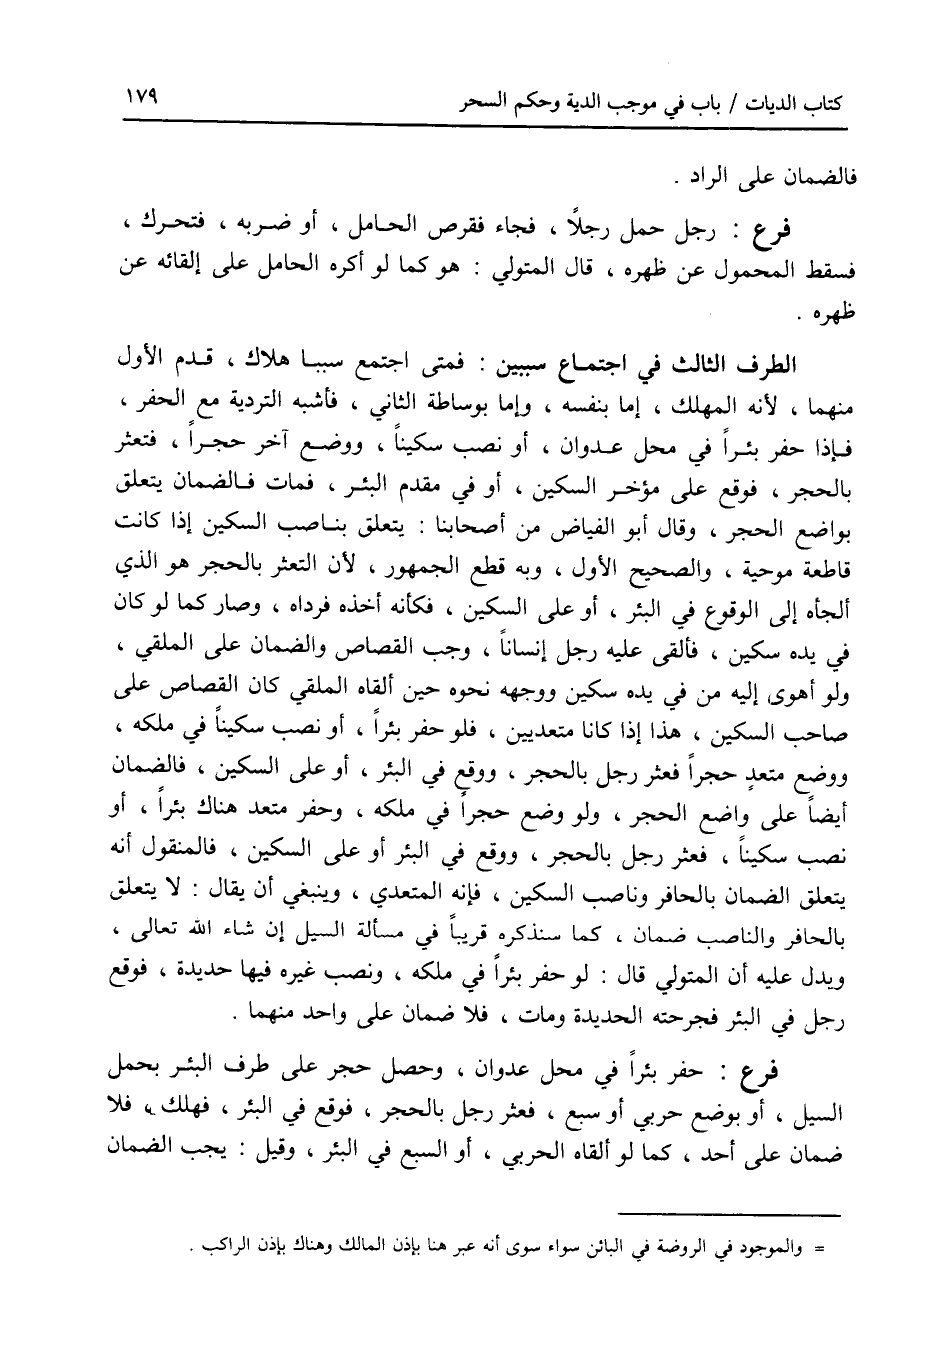 كتاب الديات / باب في موجب الدية وحكم السحر ١٧٩
فالضمان على الراد .
فرع : رجل حمل رجلاً ، فجاء فقرص الحـامل ، أو ضـربه ، فتحـرك ،
فسقط المحمول عن ظهره ، قال المتولي : هو كما لو أكره الحامل على إلقائه عن
ظهره .
الطرف الثالث في اجتمـاع سببين : فمتى اجتمع سببـا هلاك ، قـدم الأول
منهما ، لأنه المهلك ، إما بنفسه ، وإما بوساطة الثاني ، فأشبه التردية مع الحفر ،
فـإذا حفر بئـراً في محل عـدوان ، أو نصب سكينـاً ، ووضـع آخر حجـراً ، فتعثر
بالحجر ، فوقع على مؤخـر السكين ، أو في مقدم البئـر ، فمات فـالضمان يتعلق
بواضع الحجر ، وقال أبو الفياض من أصحابنا : يتعلق بنـاصب السكين إذا كانت
قاطعة موحية ، والصحيح الأول ، وبه قطع الجمهور ، لأن التعثر بالحجر هو الذي
ألجأه إلى الوقوع في البئر ، أو على السكين ، فكأنه أخذه فرداه ، وصار كما لو كان
في يده سكين ، فألقى عليه رجل إنساناً ، وجب القصاص والضمان على الملقي ،
ولو أهوى إليه من في يده سكين ووجهه نحوه حين ألقاه الملقي كان القصاص على
صاحب السكين ، هذا إذا كانا متعديين ، فلو حفر بئراً ، أو نصب سكيناً في ملكه ،
ووضع متعدٍ حجراً فعثر رجل بالحجر ، ووقع في البئر ، أو على السكين ، فالضمان
أيضاً على واضع الحجر ، ولو وضع حجراً في ملكه ، وحفر متعد هناك بئراً ، أو
نصب سكيناً ، فعثر رجل بالحجر ، ووقع في البئر أو على السكين ، فالمنقول أنه
يتعلق الضمان بالحافر وناصب السكين ، فإنه المتعدي ، وينبغي أن يقال : لا يتعلق
بالحافر والناصب ضمان ، كما سنذكره قريباً في مسألة السيل إن شاء الله تعالى ،
ويدل عليه أن المتولي قال : لو حفر بئراً في ملكه ، ونصب غيره فيها حديدة ، فوقع
رجل في البئر فجرحته الحديدة ومات ، فلا ضمان على واحد منهما .
فرع : حفر بئراً في محل عدوان ، وحصل حجر على طرف البئـر بحمل
السيل ، أو بوضع حربي أو سبع ، فعثر رجل بالحجر ، فوقع في البئر ، فهلك ، فلا
ضمان على أحد ، كما لو ألقاه الحربي ، أو السبع في البئر ، وقيل : يجب الضمان
= والموجود في الروضة في البائن سواء سوى أنه عبر هنا بإذن المالك وهناك بإذن الراكب .